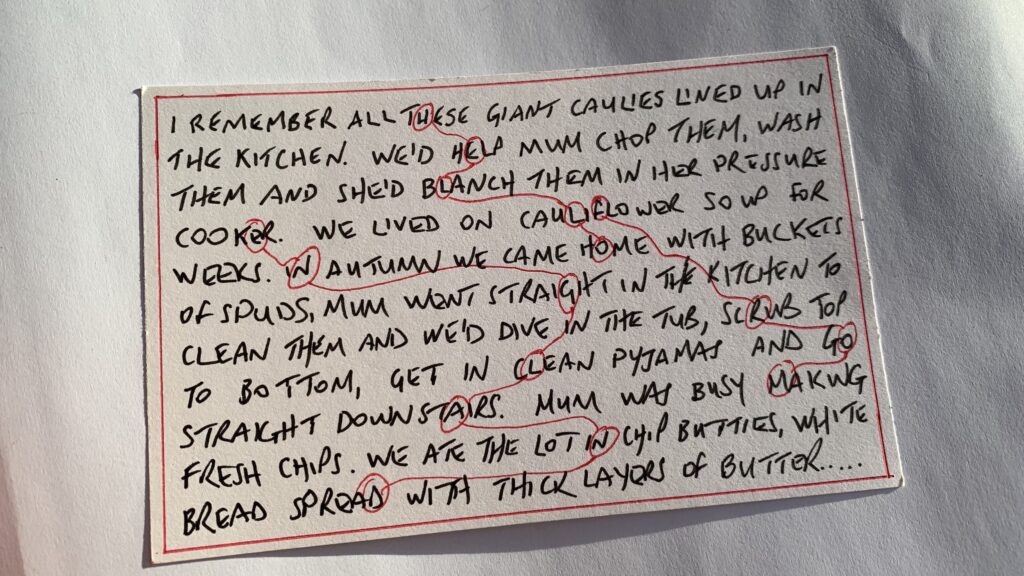 I REMEMBER ALL THESE GIANT CAULIES LINED UP IN
THE KITCHEN. WE'D HELP MUM CHOP THEM, WASH
THEM AND SHE'D BLANCH THEM IN HER PRESSURE
COOKER. WE LIVED ON CAULIFLOWER SOUP FOR
WEEKS. IN AUTUMN WE CAME HOME WITH BUCKETS
OF SPUDS, MUM WENT STRAIGHT IN THE KITCHEN TO
CLEAN THEM AND WE'D DIVE IN THE TUB, SCRUB TOP
TO BOTTOM, GET IN CLEAN PYJAMAS AND GO
STRAIGHT DOWNSTAIRS. MUM WAS BUSY MAKING
FRESH CHIPS. WE ATE THE LOT IN CHIP BUTTIES, WHITE
BREAD SPREAD WITH THICK LAYERS OF BUTTER.....